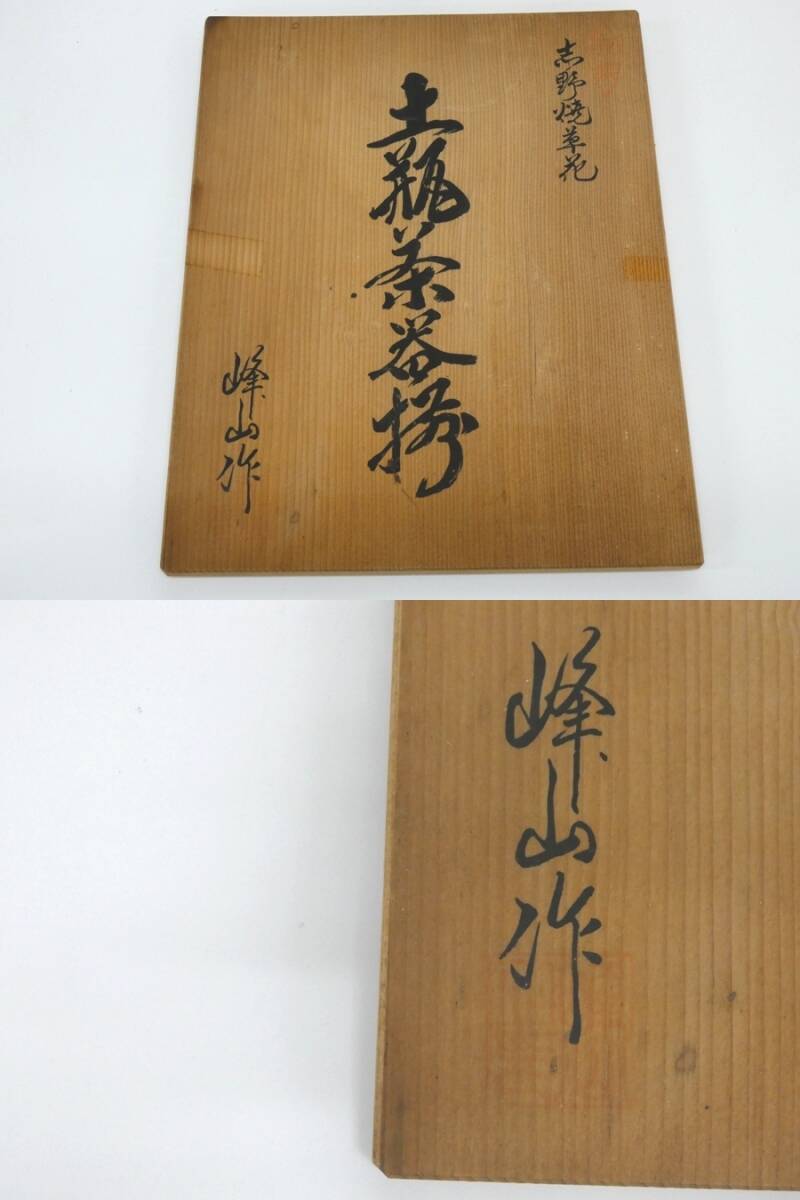 志野焼草花
土瓶茶器揃
峰山作
峰山作